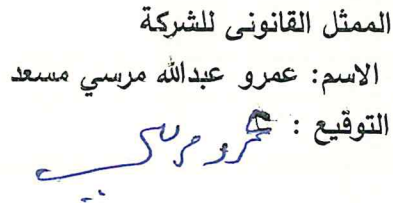 الممثل القانونى للشركة
الاسم: عمرو عبدالله مرسي مسعد
التوقيع : عمرو مرسي